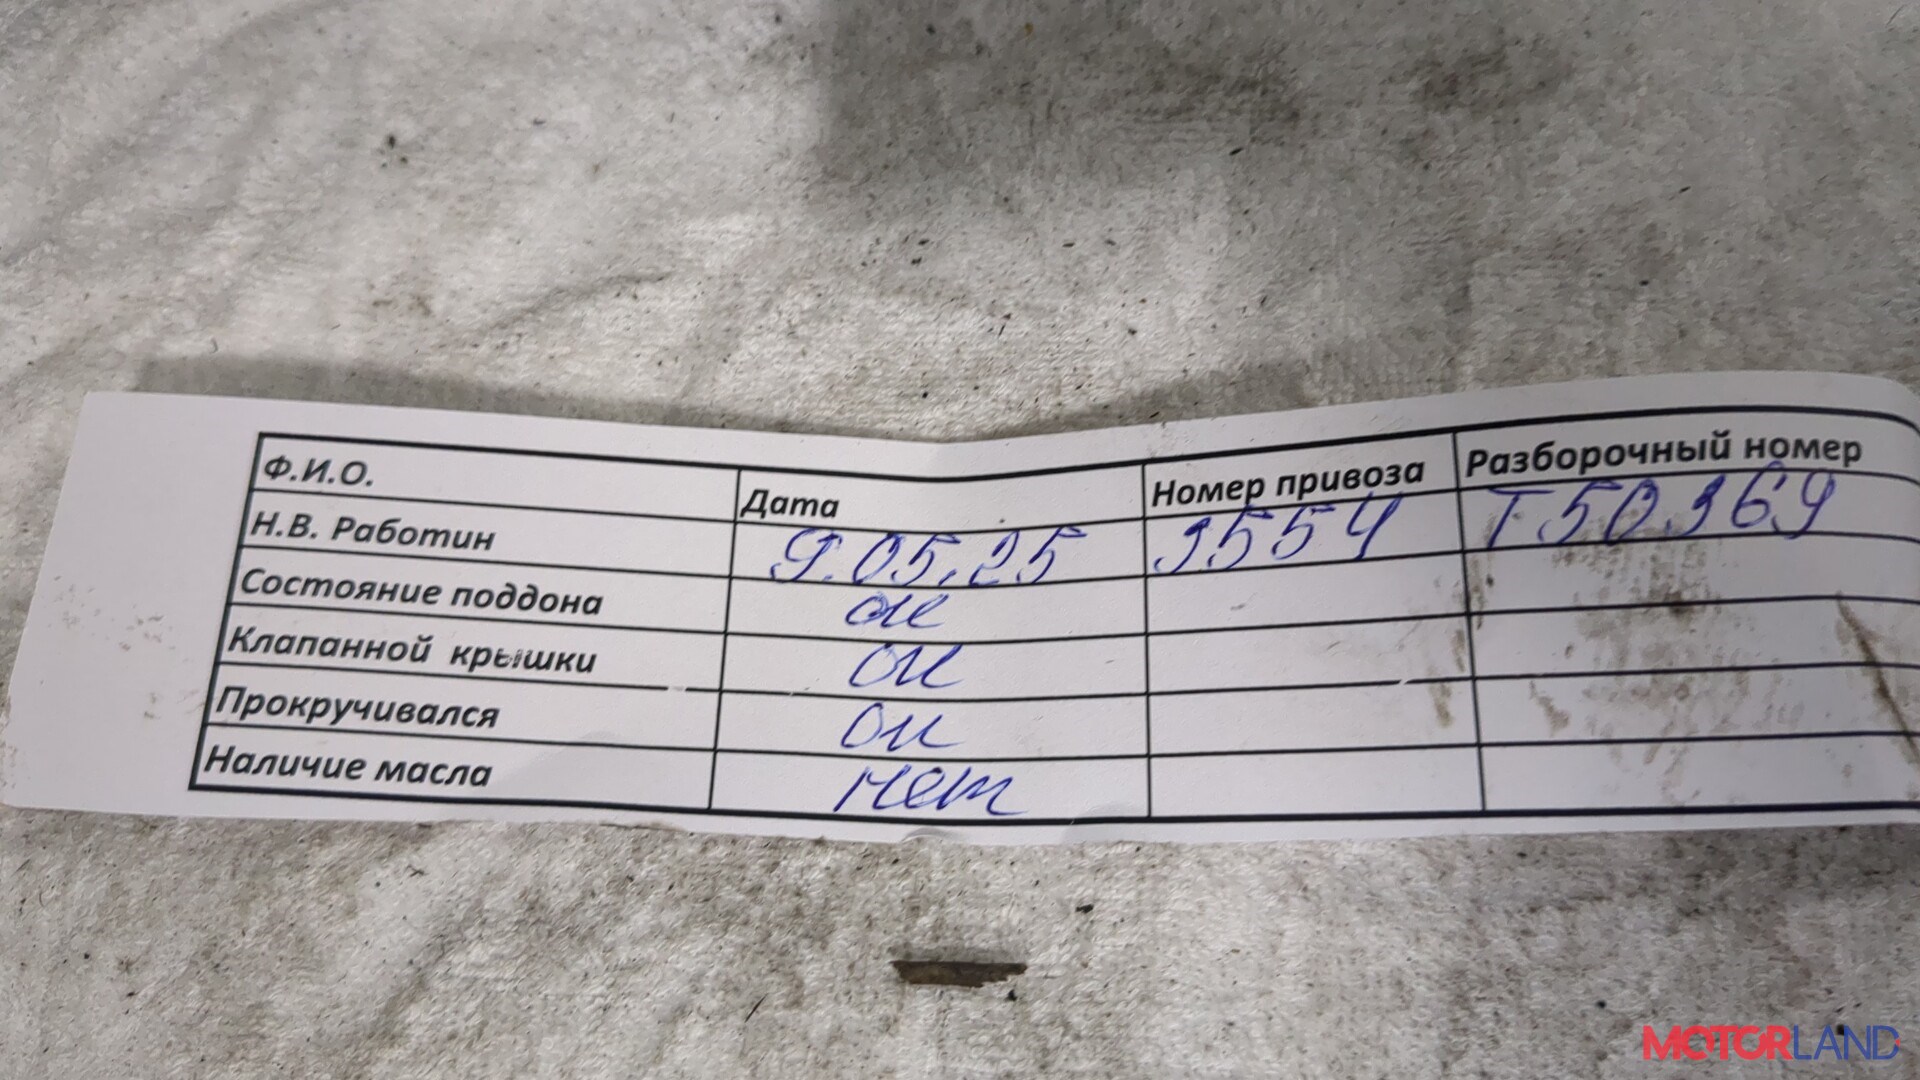 Ф.И.О. Дата Номер привоза Разборочный номер
Н.В. Работин 9.05.25 9554 T50369
Состояние поддона ок
Клапанной крышки ок
Прокручивался ок
Наличие масла нет
MOTORLAND